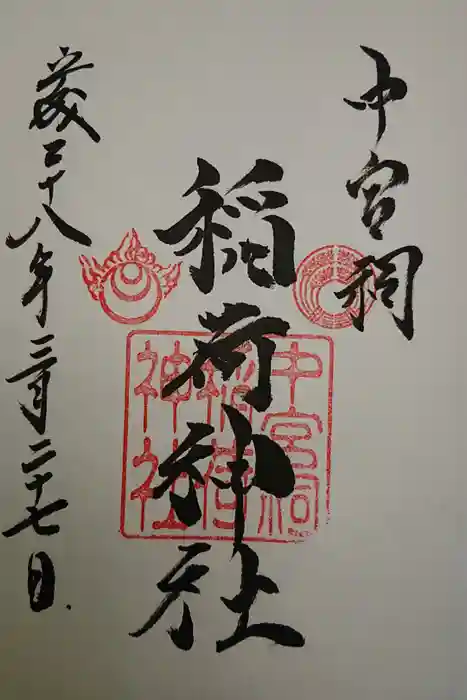 中宮祠
稲荷神社
平成二十八年三月二十七日
中宮祠
稲荷
神社